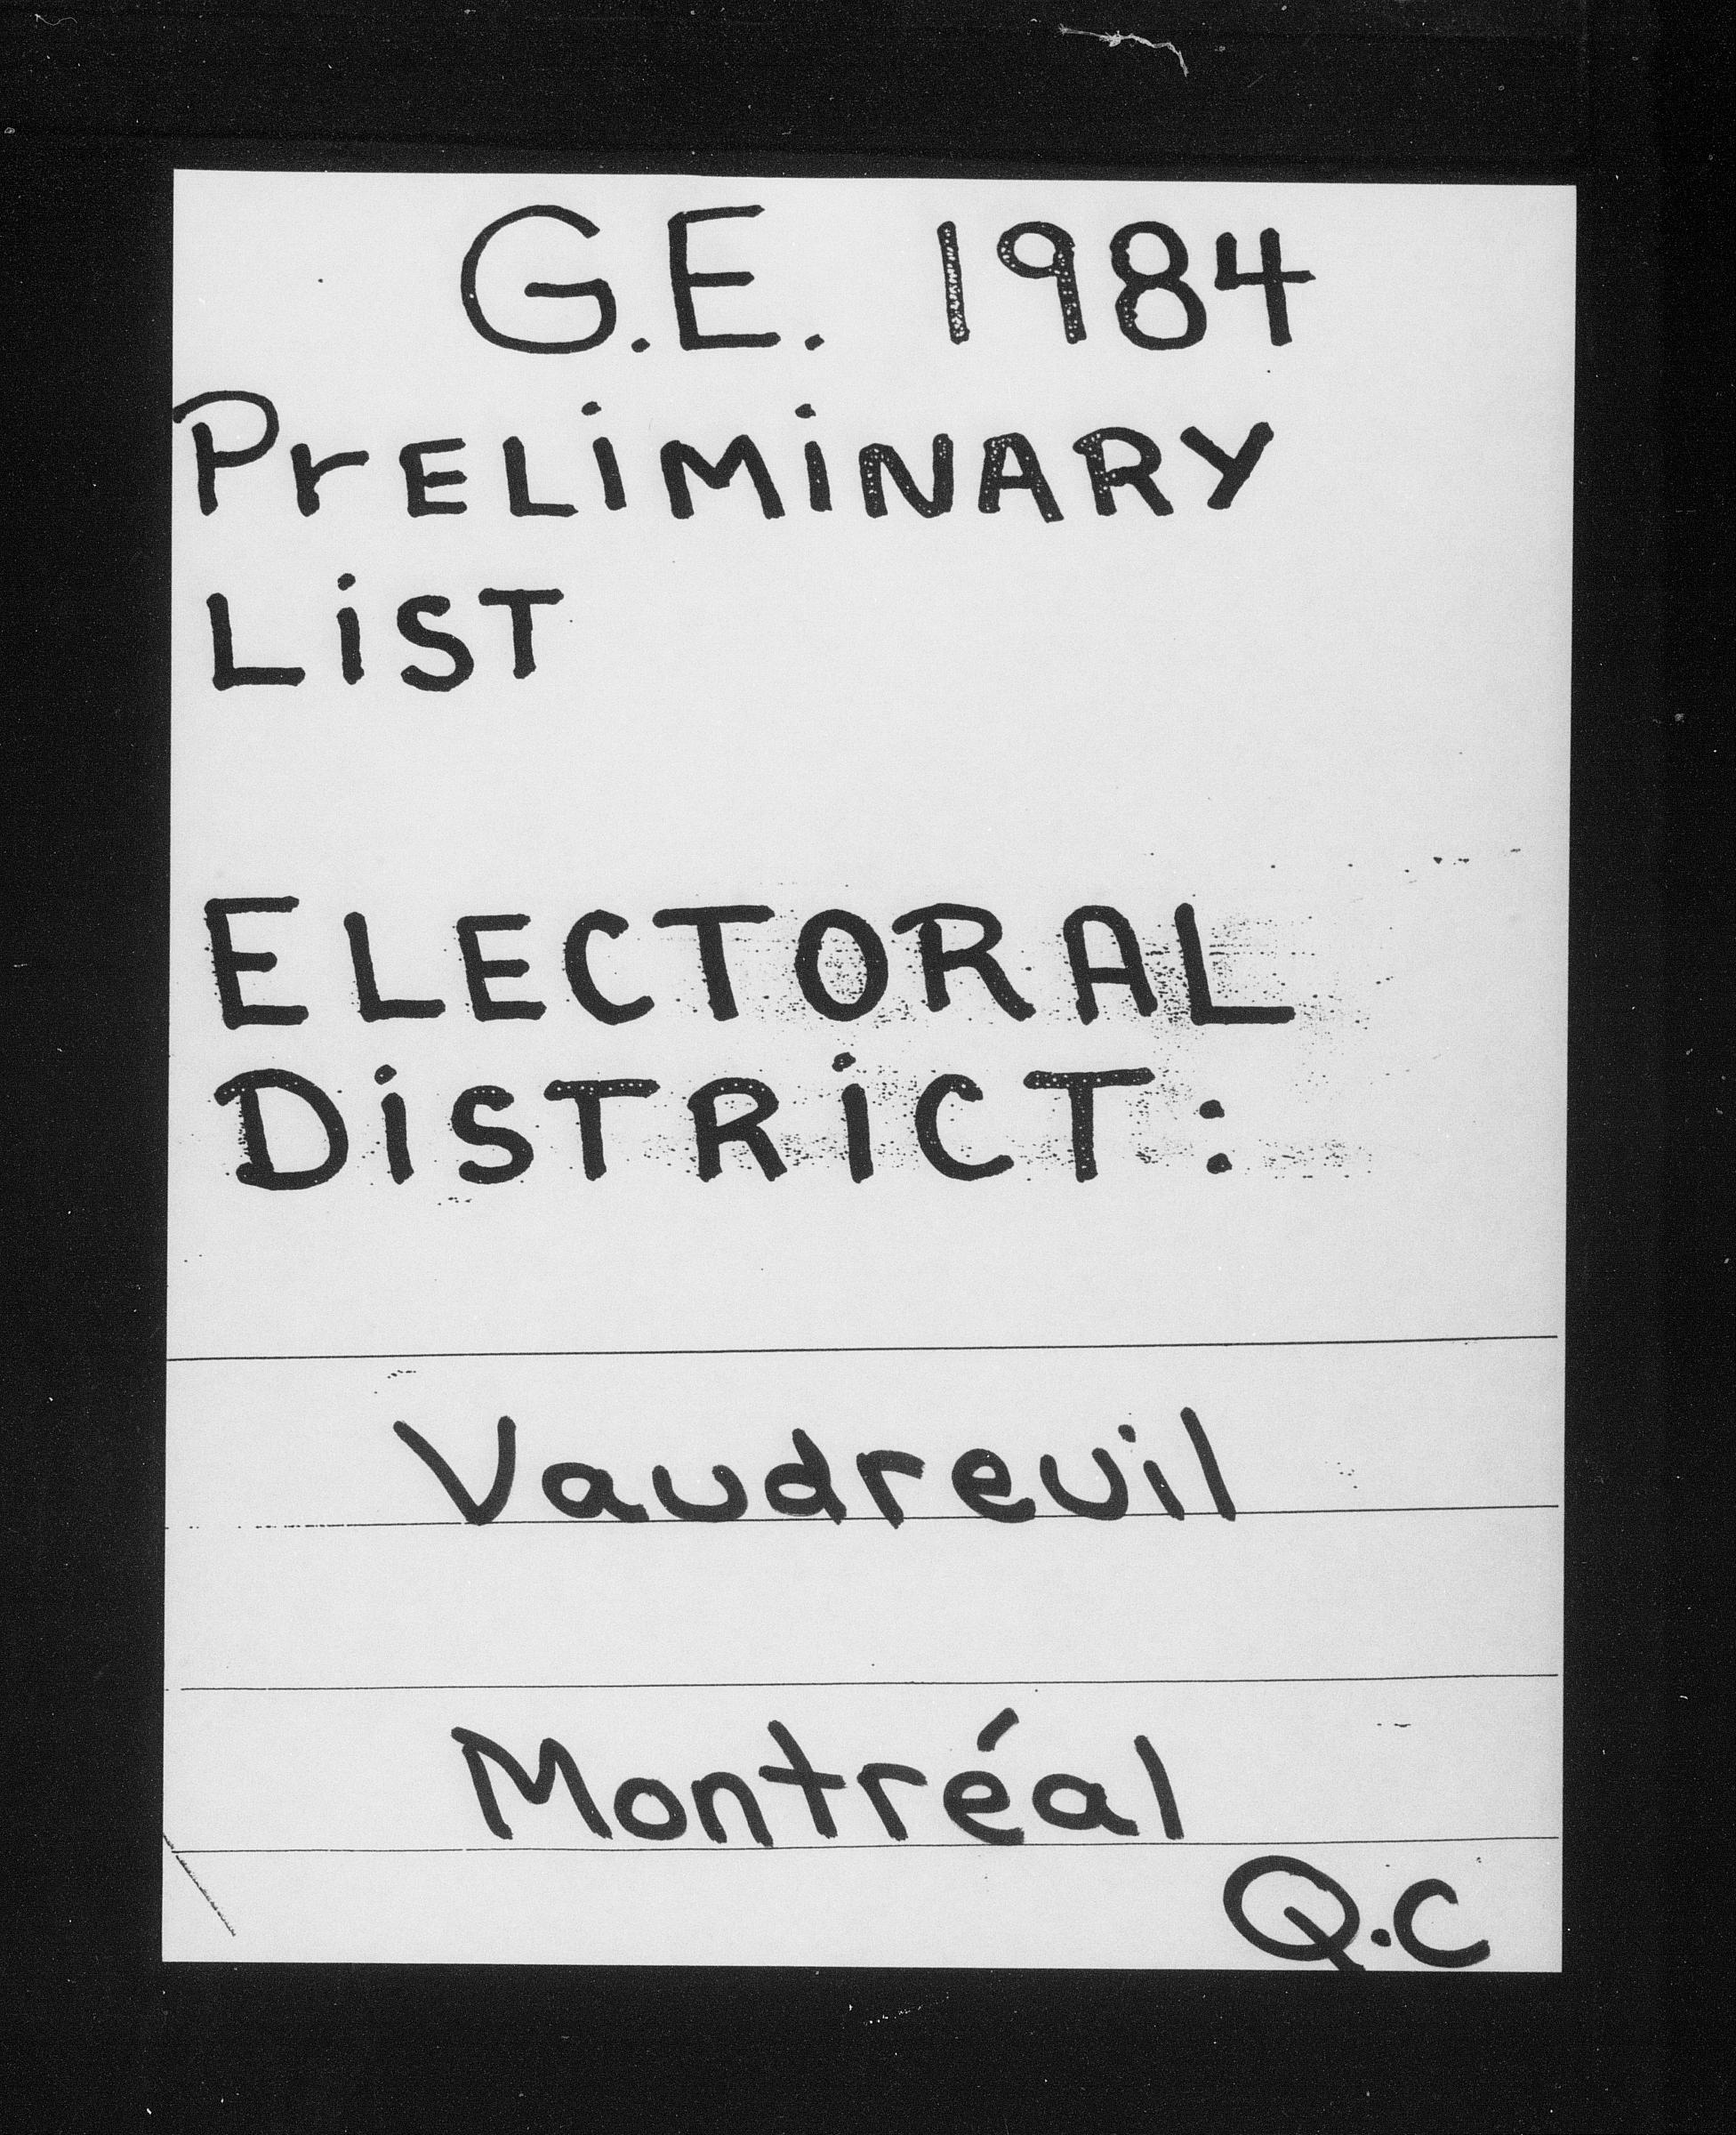 G.E. 1984
PrELiMiNARY
LiST
ELECTORAL
DiSTRiCT:
Vaudreuil
Montréal
Q.C